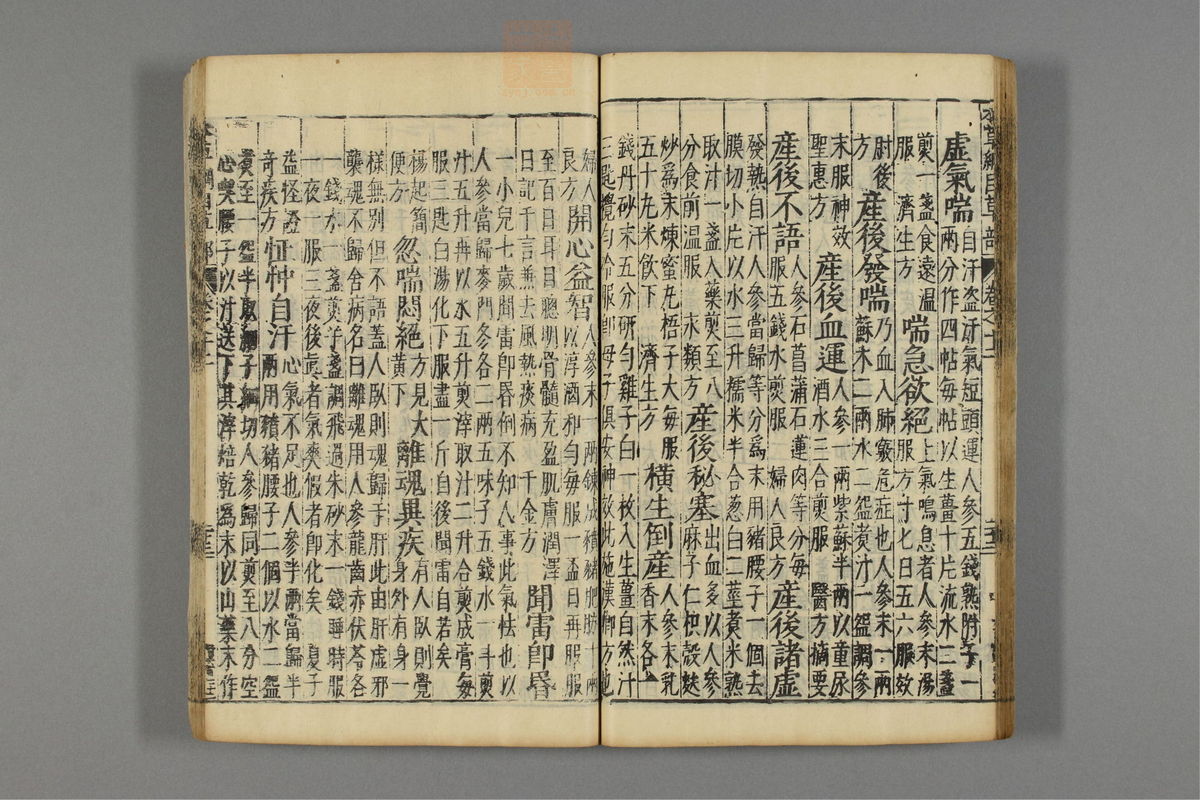 本草綱目草部 卷之十二
虛氣喘自汗盜汗氣短頭運人參五錢熟附子一
兩分作四帖每帖以生薑十片流水二盞
煎一盞食遠溫
服 濟生方 喘急欲絕上氣鳴息者人參末湯
服方寸七日五六服效
肘後方 產後發喘乃血入肺竅危症也人參末一兩
蘇木二兩水二盌煮汁一盌調參
末服神效
聖惠方 產後血運人參一兩紫蘇半兩以童尿
酒水三合煎服 醫方摘要
產後不語人參石菖蒲石蓮肉等分每
服五錢水煎服 婦人良方 產後諸虛
發熱自汗人參當歸等分為末用豬腰子一個去
膜切小片以水三升糯米半合葱白二莖煮米熟
取汁一盞入藥煎至八
分食前溫服 類方 產後秘塞出血多以人參
麻子仁枳殼麩
炒為末煉蜜丸梧子大每服
五十丸米飲下 濟生方 橫生倒產人參末乳
香末各一
錢丹砂末五分研勻雞子白一枚入生薑自然汁
三匙攪勻冷服即母子俱安神效此施漢卿方也
婦人良方 開心益智人參末一兩錬成豶豬肥肪十兩
以淳酒和勻每服一盃日再服服
至百日耳目聰明骨髓充盈肌膚潤澤
日記千言兼去風熱痰病 千金方 聞雷即昏
一小兒七歲聞雷即昏倒不知人事此氣怯也以
人參當歸麥門冬各二兩五味子五錢水一斗煎
汁五升再以水五升煎滓取汁二升合煎成膏每
服三匙白湯化下服盡一斤自後聞雷自若矣
楊起簡便方 忽喘悶絕方見大黃下 離魂異疾有人臥則覺
身外有身一
樣無別但不語蓋人臥則魂歸于肝此由肝虛邪
襲魂不歸舍病名曰離魂用人參龍齒赤伏苓各
一錢水一盞煎半盞調飛過朱砂末一錢睡時服
一夜一服三夜後真者氣爽假者即化矣 夏子
益怪證
奇疾方 怔忡自汗心氣不足也人參半兩當歸半
兩用豶豬腰子二個以水二盌
煮至一盌半取腰子細切人參歸同煎至八分空
心喫腰子以汁送下其滓焙乾為末以山藥末作